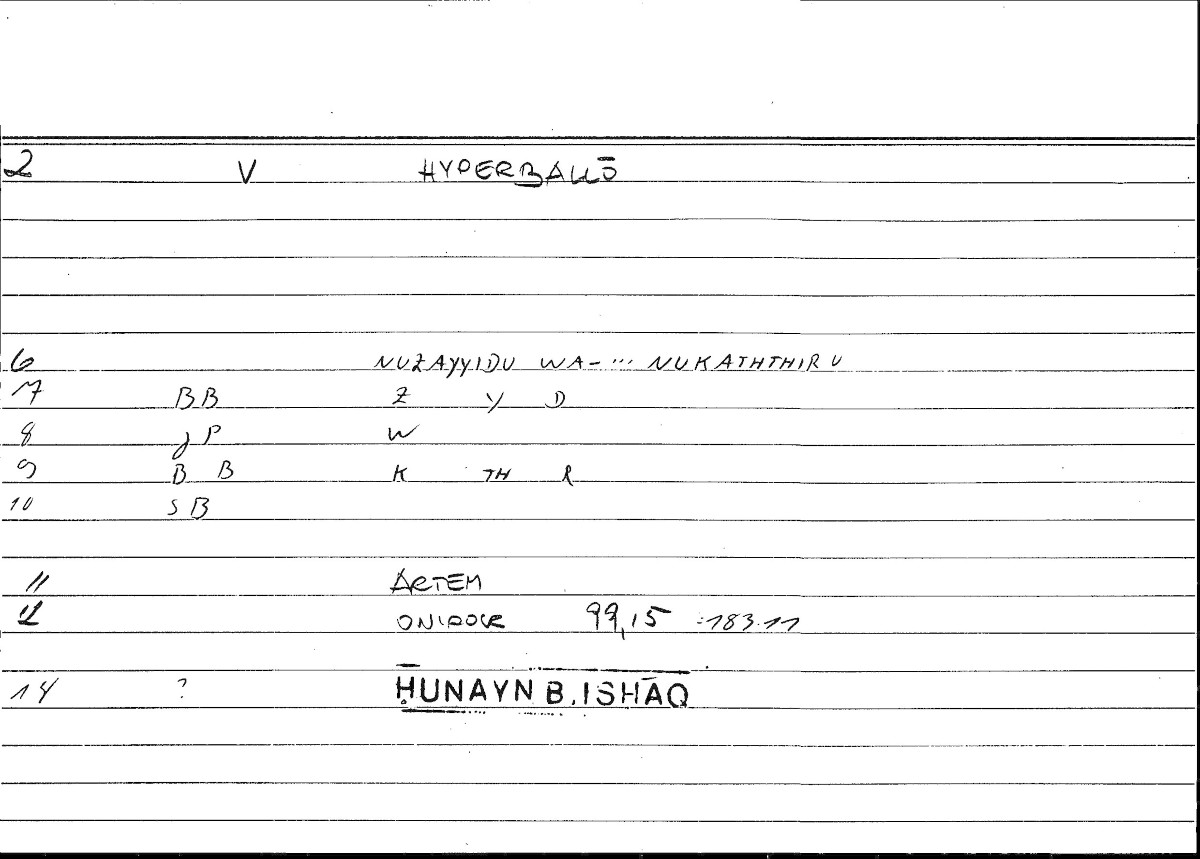 2 V HYPERBALLŌ
6 NUZAYYIDU WA-... NUKATHTHIRU
7 BB Z Y D
8 JP W
9 B B K TH R
10 SB
11 ARTEM
12 ONIROCR 99,15 :183.11
14 ? ḤUNAYN B. ISḤĀQ